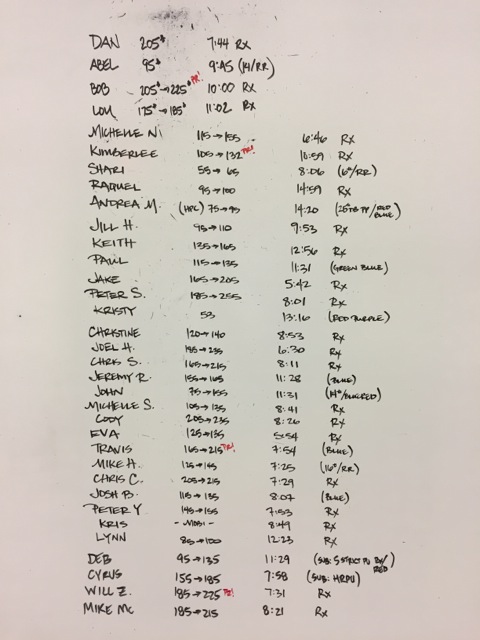 DAN 205# 7:44 Rx
ABEL 95# 9:45 (14/RR)
BOB 205#→225# PR! 10:00 Rx
LOU 175#→185# 11:02 Rx
MICHELLE N. 115→155 6:46 Rx
KIMBERLEE 105→132 PR! 10:59 Rx
SHARI 55→65 8:06 (6"/RR)
RAQUEL 95→100 14:59 Rx
ANDREA M. (HPC) 75→95 14:20 RED BLUE)
JILL H. 95→110 9:53 Rx
KEITH 135→165 12:56 Rx
PAUL 115→135 11:31 (GREEN BLUE)
JAKE 165→205 5:42 Rx
PETER S. 185→255 8:01 Rx
KRISTY 53 13:16 (RED PURPLE)
CHRISTINE 120→140 8:53 Rx
JOEL H. 185→235 6:30 Rx
CHRIS S. 165→215 8:11 Rx
JEREMY R. 155→165 11:28 (BLUE)
JOHN 75→155 11:31
MICHELLE S. 105→135 8:41 Rx
CODY 205→235 8:26 Rx
EVA 125→135 5:54 Rx
TRAVIS 165→215 PR! 7:54 (BLUE)
MIKE H. 125→145 7:25 (16"/RR)
CHRIS C. 205→215 7:29 Rx
JOSH B. 115→135 8:07 (BLUE)
PETER Y 145→155 7:53 Rx
KRIS - MOBI - 8:49 Rx
LYNN 85→100 12:23 Rx
DEB 95→135 11:29 (SUB: 5 STRICT PU RED
CYRUS 155→185 7:58 (SUB: HRPU)
WILL Z. 185→225 PR! 7:31 Rx
MIKE MC 185→215 8:21 Rx